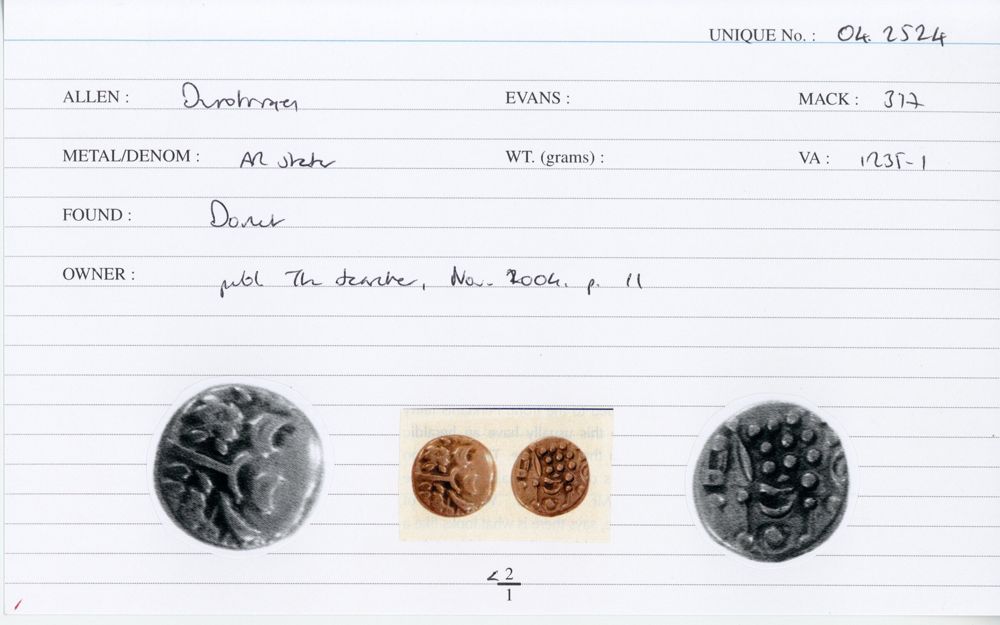 UNIQUE No. : 04. 2524
ALLEN : Durotriges EVANS : MACK : 317
METAL/DENOM : AR stater WT. (grams) : VA : 1235-1
FOUND : Dorset
OWNER :
publ The Searcher, Nov. 2004. p. 11
this usually have an heraldic
says there is what looks like a
< 2
1